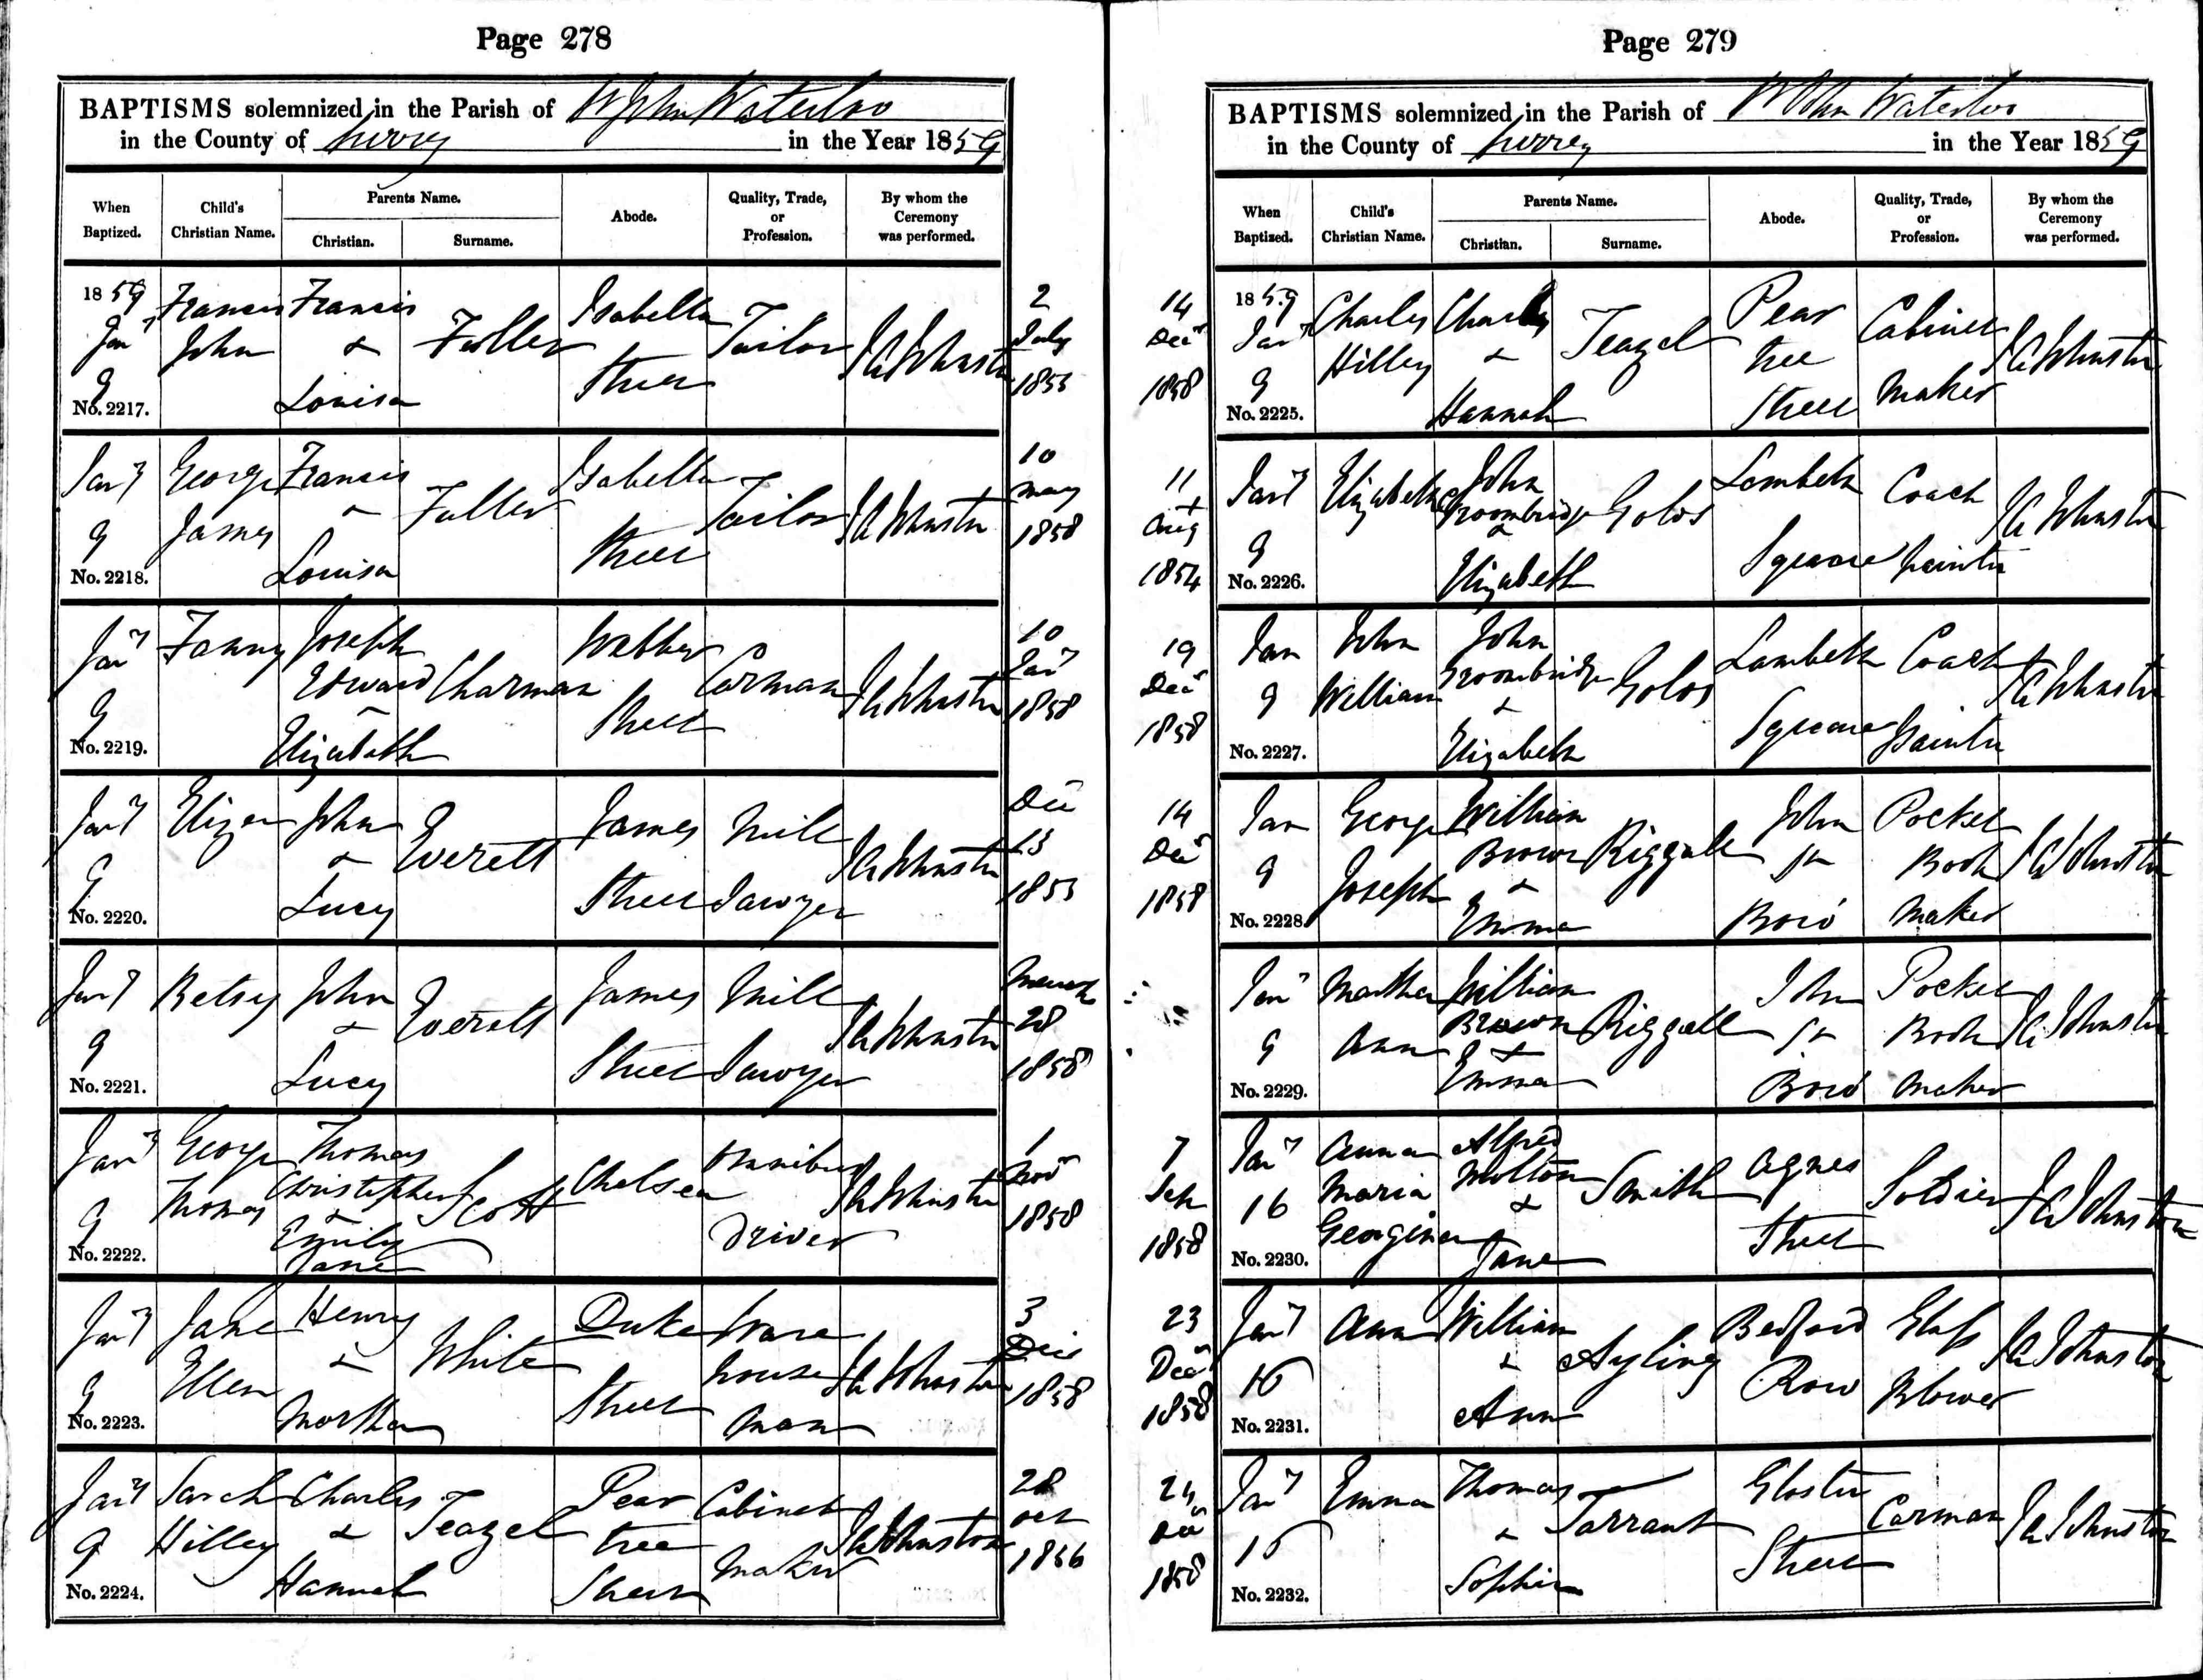 Page 278
BAPTISMS solemnized in the Parish of St John Waterloo
in the County of Surrey in the Year 1859
When Baptized.
Child's Christian Name.
Parents Name.
Christian.
Surname.
Abode.
Quality, Trade, or Profession.
By whom the Ceremony was performed.
1859 Jany 9 No. 2217. Francis John Francis & Louisa Fuller Isabella Street Tailor J A Johnston 2 July 1855
Jany 9 No. 2218. George James Francis & Louisa Fuller Isabella Street Tailor J A Johnston 10 May 1858
Jany 9 No. 2219. Fanny Joseph Edward & Elizabeth Charman Webber Street Carman J A Johnston 10 Jany 1858
Jany 9 No. 2220. Eliza John & Lucy Everett James Street Mill Sawyer J A Johnston Dec 13 1855
Jany 9 No. 2221. Betsey John & Lucy Everett James Street Mill Sawyer J A Johnston March 28 1858
Jany 9 No. 2222. George Thomas Thomas Christopher & Emily Jane Scott Chelsea Omnibus Driver J A Johnston 1 Nov 1858
Jany 9 No. 2223. Jane Ellen Henry & Martha White Duke Street Ware house man J A Johnston 3 Dec 1858
Jany 9 No. 2224. Sarah Hilley Charles & Hannah Teazel Pear tree Street Cabinet Maker J A Johnston 28 Oct 1856
Page 279
BAPTISMS solemnized in the Parish of St John Waterloo
in the County of Surrey in the Year 1859
When Baptized.
Child's Christian Name.
Parents Name.
Christian.
Surname.
Abode.
Quality, Trade, or Profession.
By whom the Ceremony was performed.
14 Dec 1858 1859 Jany 9 No. 2225. Charles Hilley Charles & Hannah Teazel Pear tree Street Cabinet Maker J A Johnston
11 Aug 1854 Jany 9 No. 2226. Elizabeth John Groombridge & Elizabeth Golds Lambeth Square Coach Painter J A Johnston
19 Dec 1858 Jan 9 No. 2227. John William John Groombridge & Elizabeth Golds Lambeth Square Coach Painter J A Johnston
14 Dec 1858 Jan 9 No. 2228. George Joseph William Brown & Emma Riggall John St Boro Pocket Book Maker J A Johnston
Jany 9 No. 2229. Martha Ann William Brown & Emma Riggall John St Boro Pocket Book Maker J A Johnston
7 Sep 1858 Jany 16 No. 2230. Anna Maria Georgina Alfred Molton & Jane Smith Agnes Street Soldier J A Johnston
23 Dec 1858 Jany 16 No. 2231. Ann William & Ann Ayling Bedford Row Glass Blower J A Johnston
Dec 1858 Jany 16 No. 2232. Emma Thomas & Sophia Tarrant Gloster Street Carman J A Johnston